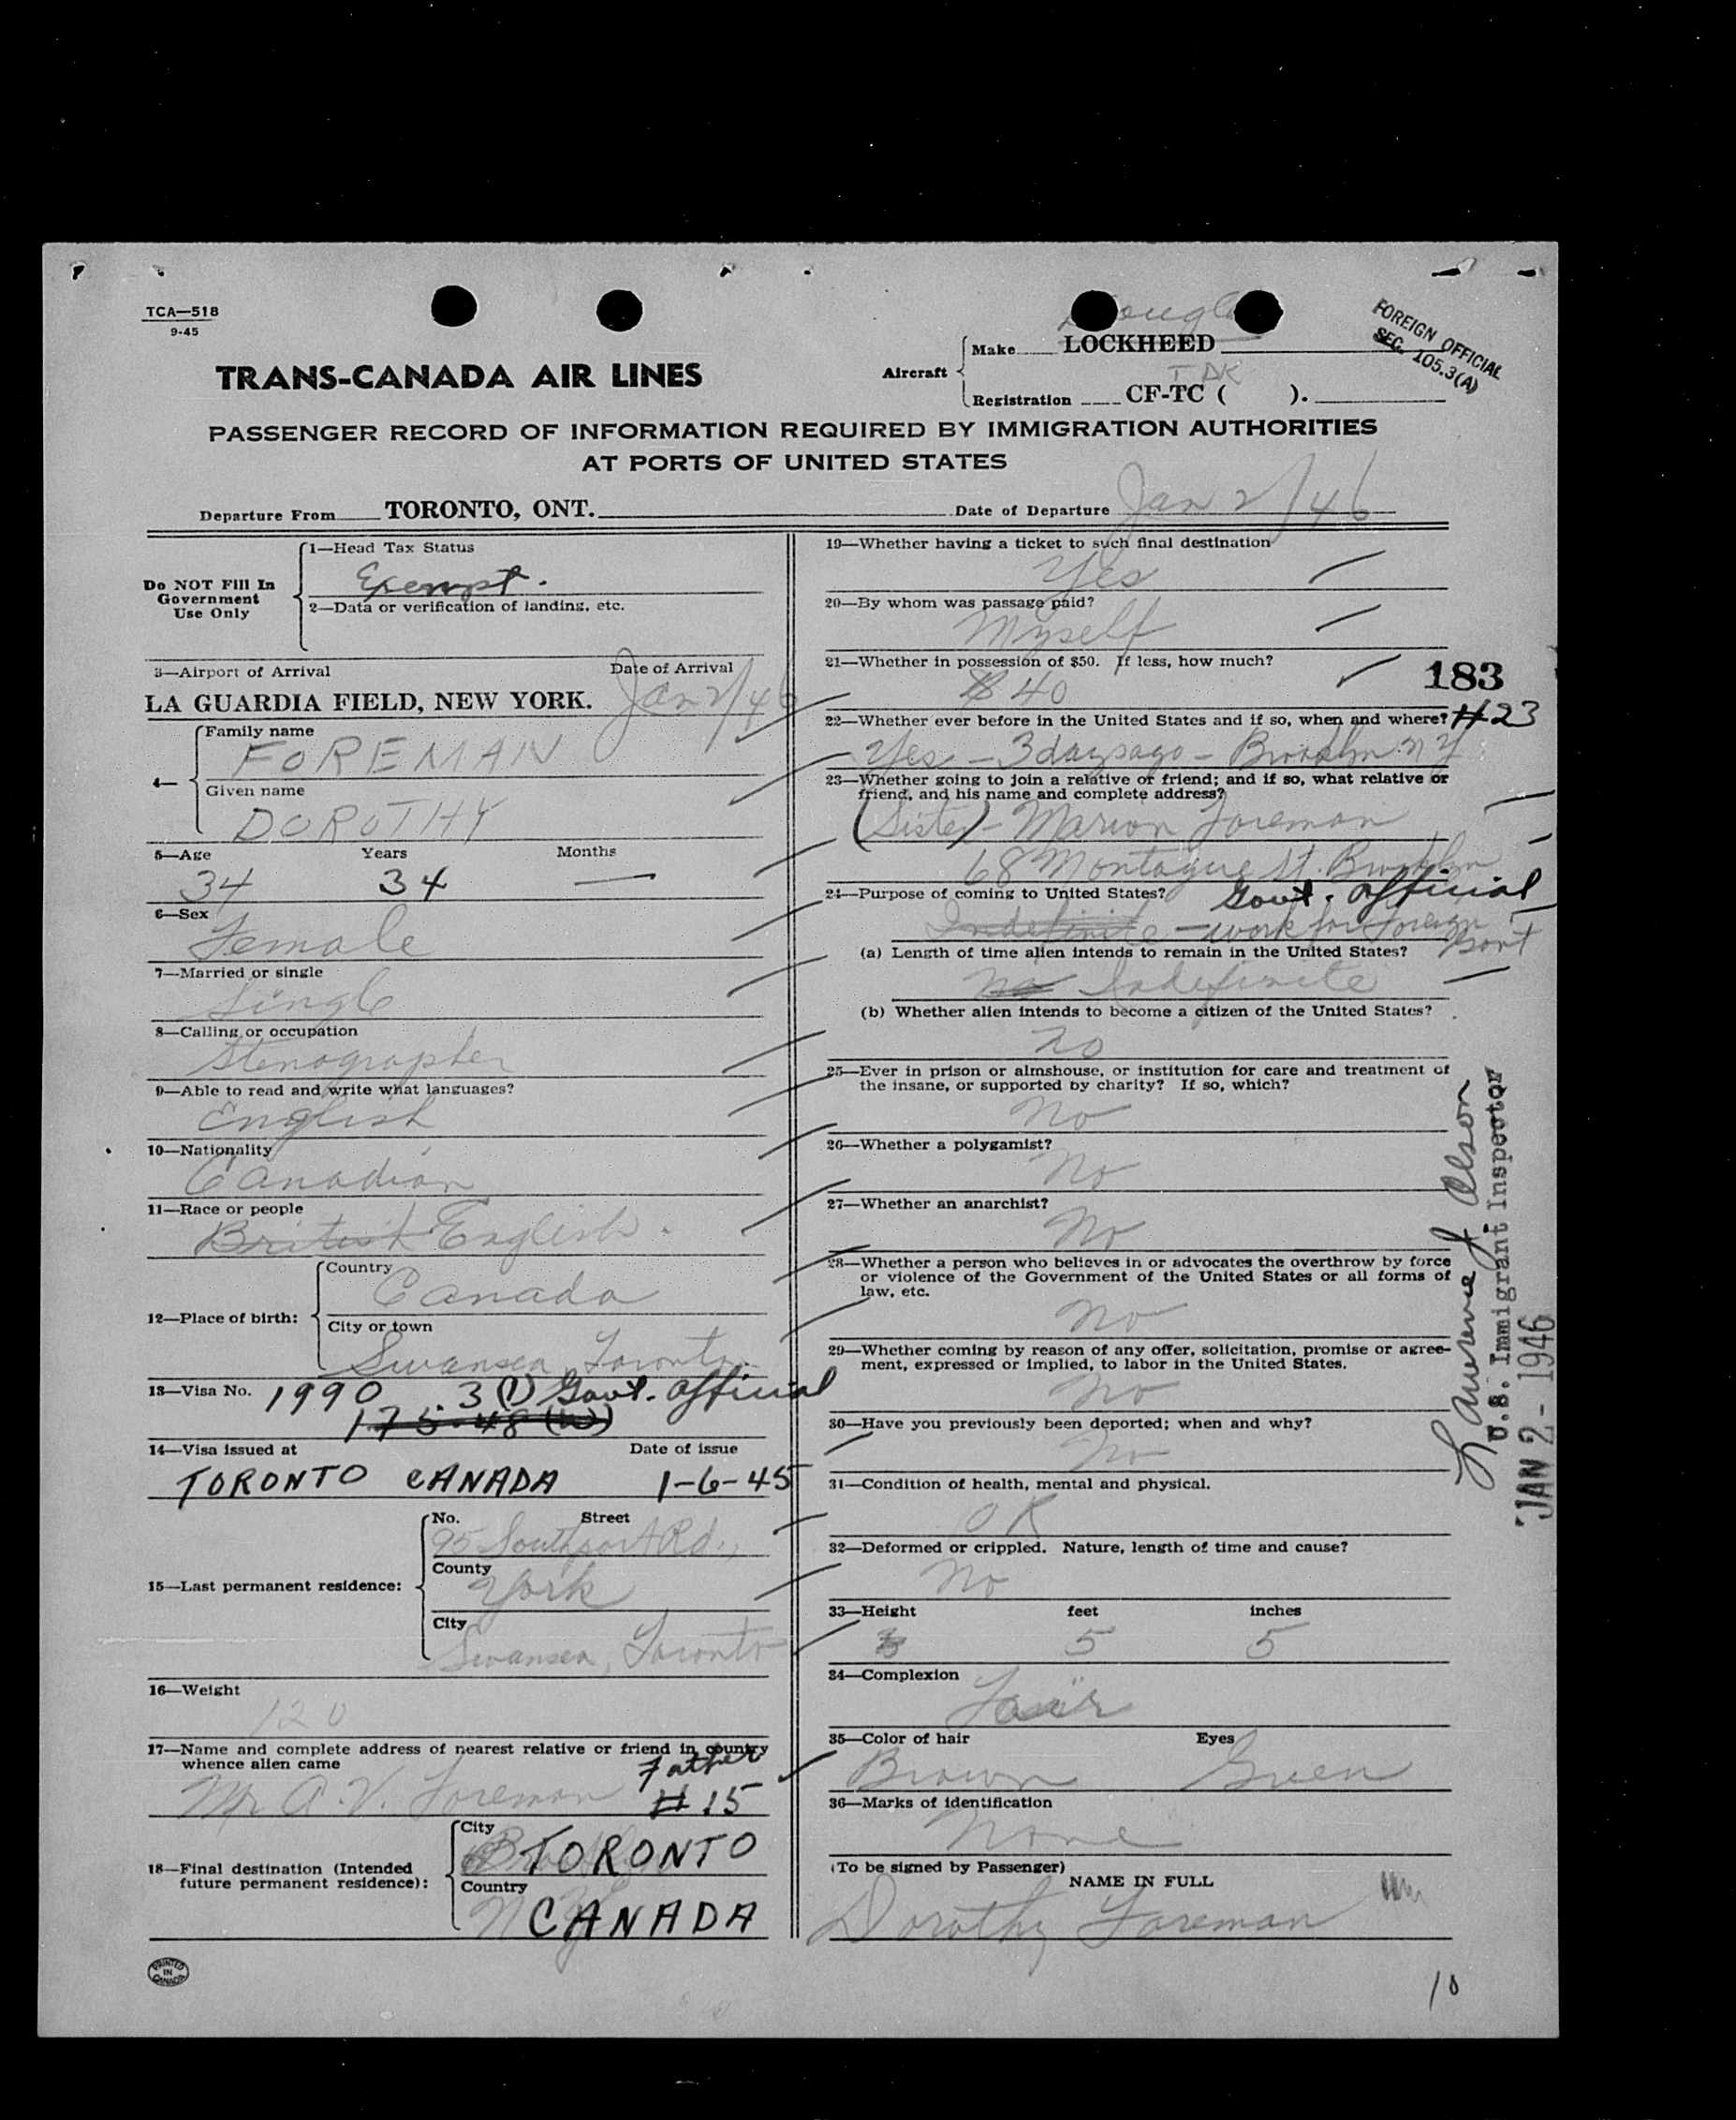 TCA—518
9-45
Douglas
Make LOCKHEED
Aircraft
Registration CF-TC ( ).
FOREIGN OFFICIAL
SEC. 105.3(A)
TRANS-CANADA AIR LINES
PASSENGER RECORD OF INFORMATION REQUIRED BY IMMIGRATION AUTHORITIES
AT PORTS OF UNITED STATES
Departure From TORONTO, ONT.
Date of Departure Jan 2/46
Do NOT Fill In
Government
Use Only
1—Head Tax Status
Exempt.
2—Data or verification of landing, etc.
3—Airport of Arrival Date of Arrival
LA GUARDIA FIELD, NEW YORK. Jan 2/46
4—
Family name
FOREMAN
Given name
DOROTHY
5—Age Years Months
34 34 —
6—Sex
Female
7—Married or single
Single
8—Calling or occupation
Stenographer
9—Able to read and write what languages?
English
10—Nationality
Canadian
11—Race or people
British English.
12—Place of birth:
Country
Canada
City or town
Swansea, Toronto
13—Visa No. 1990 3 (1) Govt. official
175-48 (W)
14—Visa issued at Date of issue
TORONTO CANADA 1-6-45
15—Last permanent residence:
No. Street
95 Southport Rd.,
County
York
City
Swansea, Toronto
16—Weight
120
17—Name and complete address of nearest relative or friend in country
whence alien came
Father
Mr A. V. Foreman # 15
18—Final destination (Intended
future permanent residence):
City
TORONTO
Country
CANADA
PRINTED
IN
CANADA
19—Whether having a ticket to such final destination
Yes
20—By whom was passage paid?
Myself
21—Whether in possession of $50. If less, how much?
$40
183
22—Whether ever before in the United States and if so, when and where? #23
Yes – 3 days ago – Brooklyn N Y
23—Whether going to join a relative or friend; and if so, what relative or
friend, and his name and complete address?
(Sister) – Marion Foreman
68 Montague St. Brooklyn
24—Purpose of coming to United States? Govt. official
Indefinite – work for Foreign
Govt
(a) Length of time alien intends to remain in the United States?
No Indefinite
(b) Whether alien intends to become a citizen of the United States?
No
25—Ever in prison or almshouse, or institution for care and treatment of
the insane, or supported by charity? If so, which?
No
26—Whether a polygamist?
No
27—Whether an anarchist?
No
28—Whether a person who believes in or advocates the overthrow by force
or violence of the Government of the United States or all forms of
law, etc.
No
29—Whether coming by reason of any offer, solicitation, promise or agree-
ment, expressed or implied, to labor in the United States.
No
30—Have you previously been deported; when and why?
No
31—Condition of health, mental and physical.
OK
32—Deformed or crippled. Nature, length of time and cause?
No
33—Height feet inches
5 5
34—Complexion
Fair
35—Color of hair Eyes
Brown Green
36—Marks of identification
None
(To be signed by Passenger)
NAME IN FULL
Dorothy Foreman
Lawrence J Olson
U.S. Immigrant Inspector
JAN 2 - 1946
10